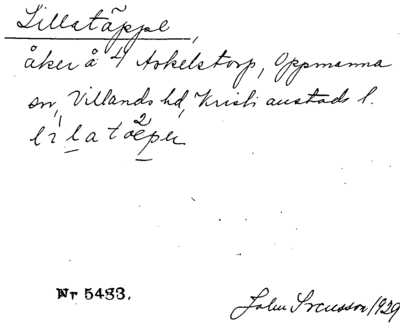 Lillatäppe,
åker å 4 Askelstorp, Oppmanna
sn, Villands hd, Kristianstads l.
Nr 5483.
John Svensson 1929